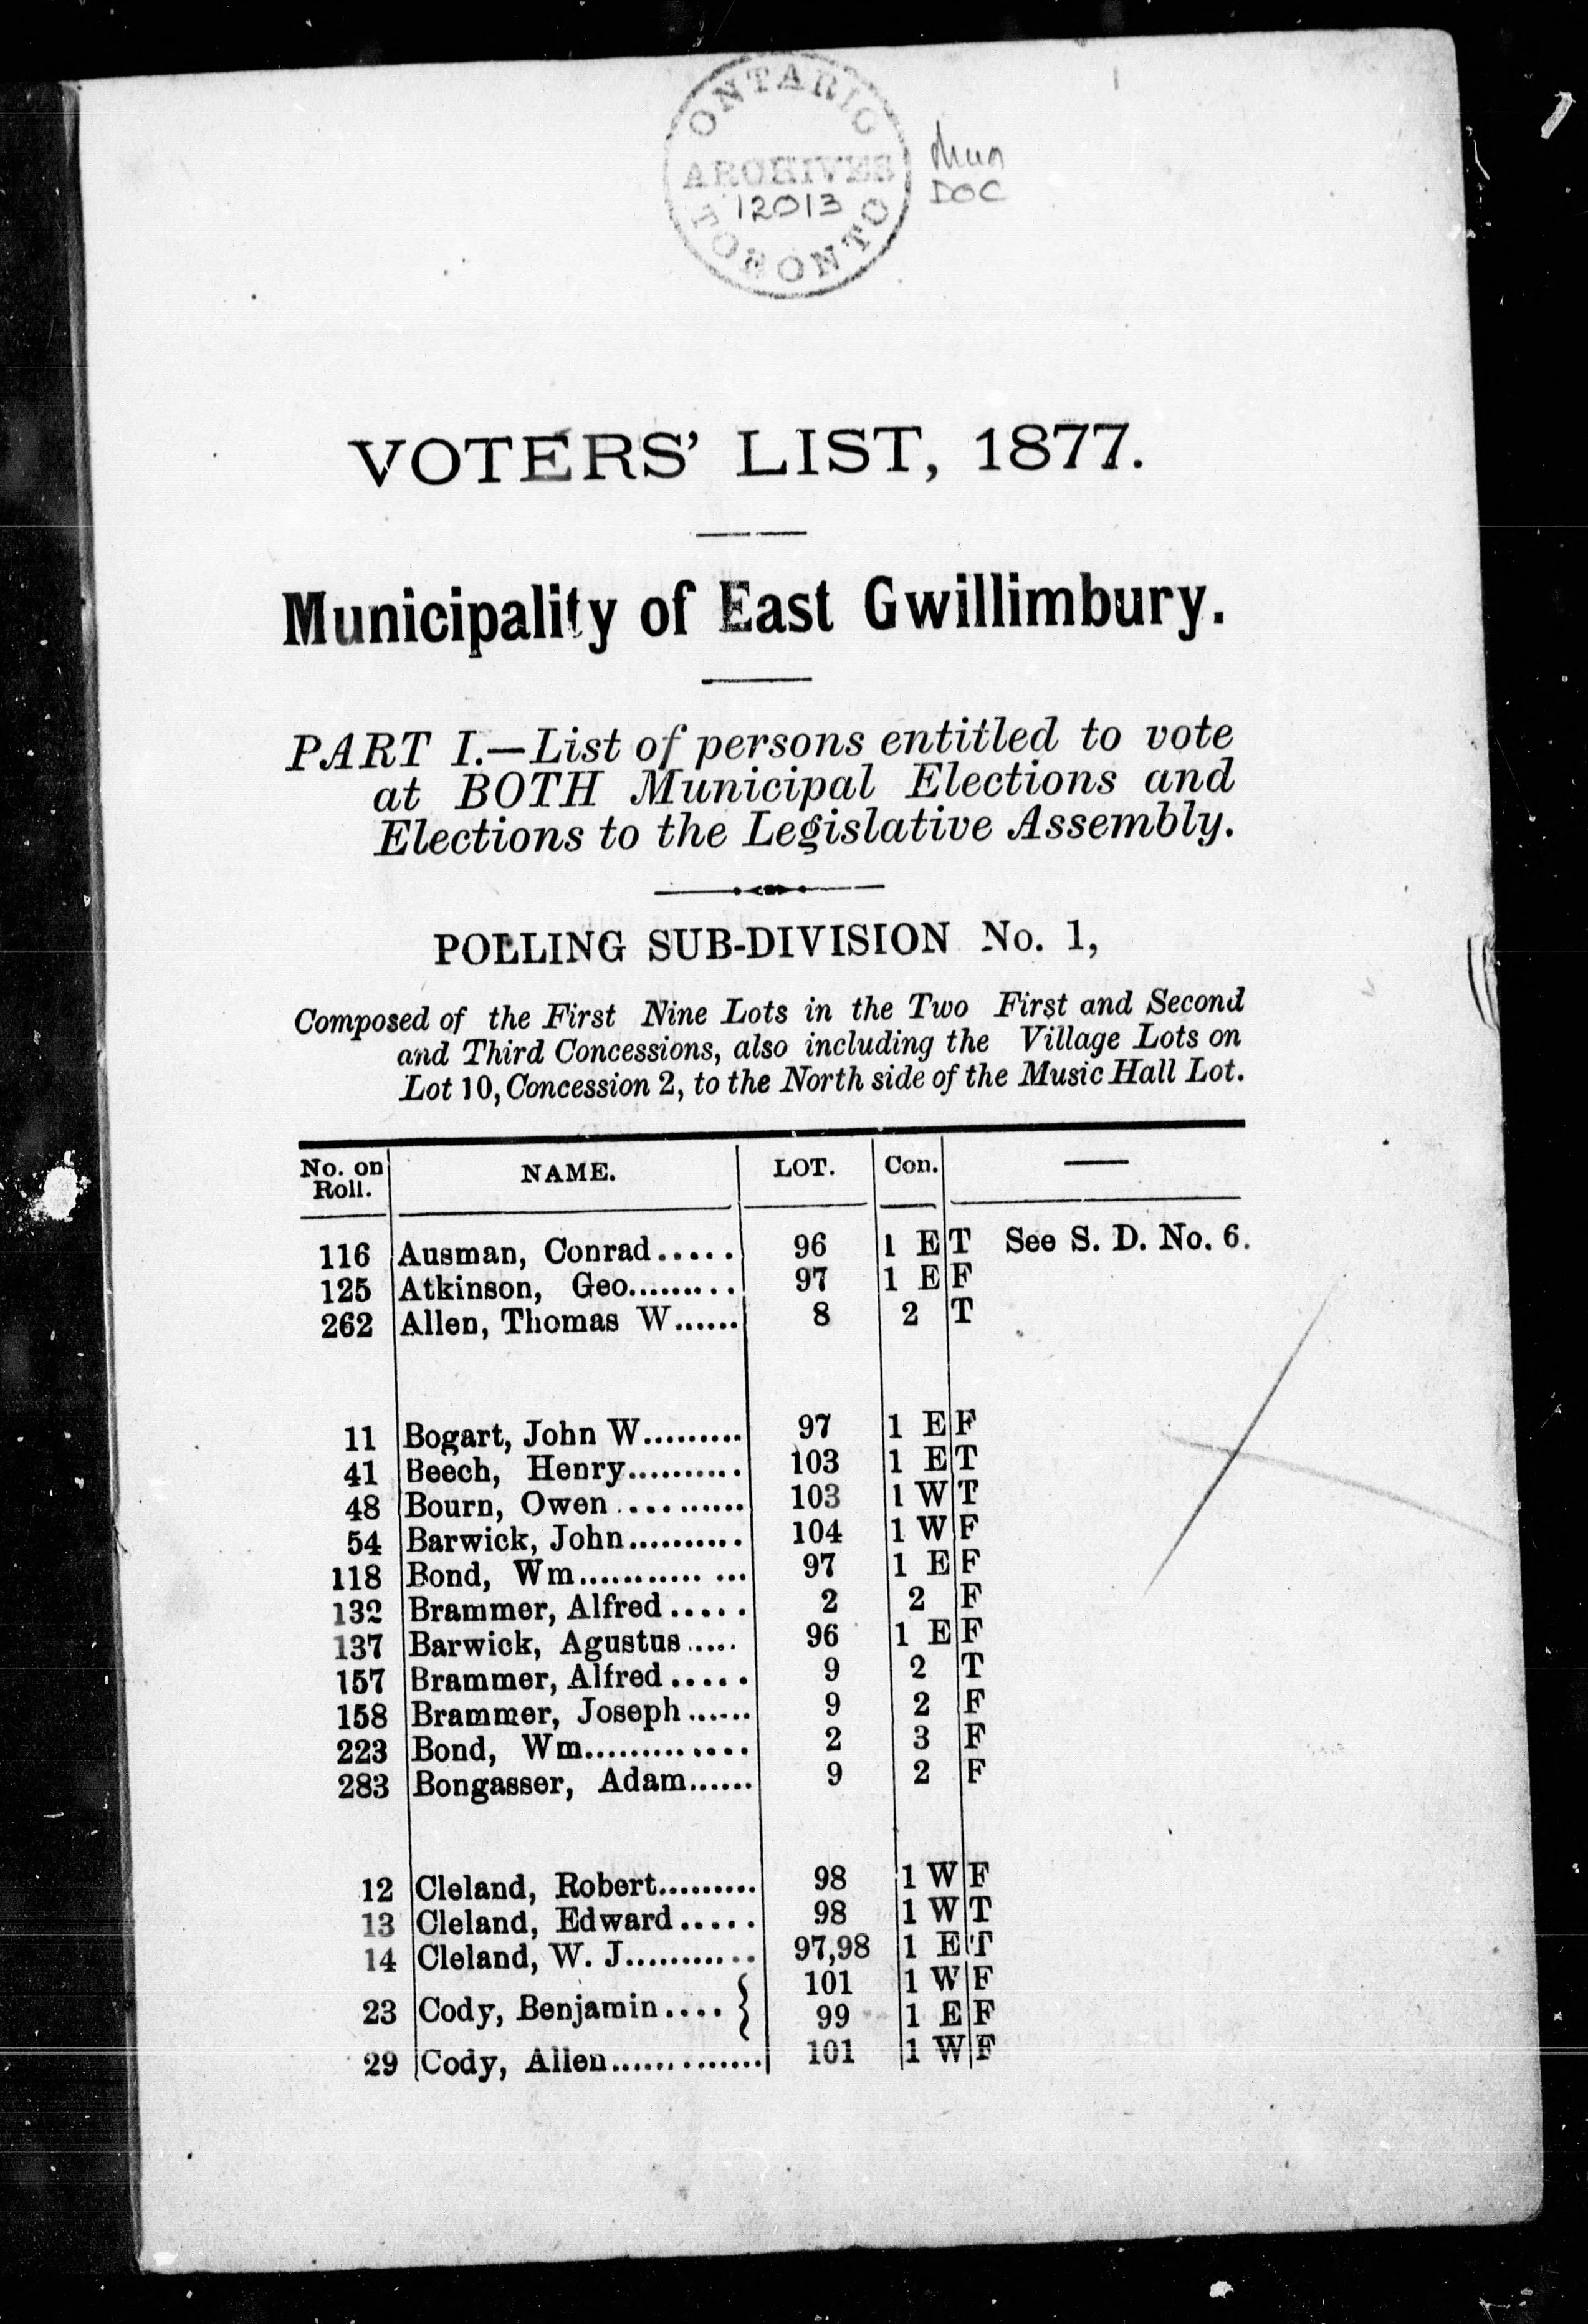 ONTARIO
ARCHIVES
12013
TORONTO
Mun
DOC
VOTERS' LIST, 1877.
Municipality of East Gwillimbury.
PART I.—List of persons entitled to vote
at BOTH Municipal Elections and
Elections to the Legislative Assembly.
POLLING SUB-DIVISION No. 1,
Composed of the First Nine Lots in the Two First and Second
and Third Concessions, also including the Village Lots on
Lot 10, Concession 2, to the North side of the Music Hall Lot.
No. on Roll. NAME. LOT. Con. —
116 Ausman, Conrad..... 96 1 E T See S. D. No. 6.
125 Atkinson, Geo......... 97 1 E F
262 Allen, Thomas W...... 8 2 T
11 Bogart, John W......... 97 1 E F
41 Beech, Henry.......... 103 1 E T
48 Bourn, Owen.......... 103 1 W T
54 Barwick, John.......... 104 1 W F
118 Bond, Wm........... ... 97 1 E F
132 Brammer, Alfred..... 2 2 F
137 Barwick, Agustus..... 96 1 E F
157 Brammer, Alfred..... 9 2 T
158 Brammer, Joseph...... 9 2 F
223 Bond, Wm............. 2 3 F
283 Bongasser, Adam...... 9 2 F
12 Cleland, Robert......... 98 1 W F
13 Cleland, Edward..... 98 1 W T
14 Cleland, W. J........... 97,98 1 E T
23 Cody, Benjamin.... { 101 1 W F
99 1 E F
29 Cody, Allen............. 101 1 W F